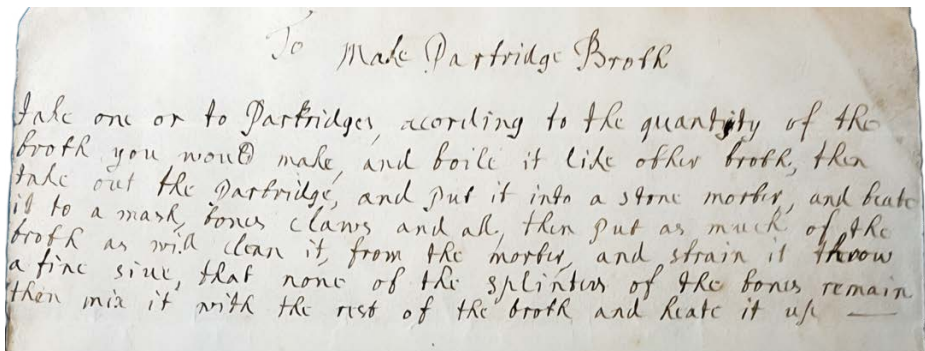 To Make Partridge Broth
take one or to Partridges, acording to the quantity of the
broth you woud make, and boile it like other broth, then
take out the Partridge, and put it into a stone morter, and beate
it to a mash, bones claws and all, then put as much of the
broth as will clean it, from the morter, and strain it throw
a fine sive, that none of the splinters of the bones remain
then mix it with the rest of the broth and heate it up